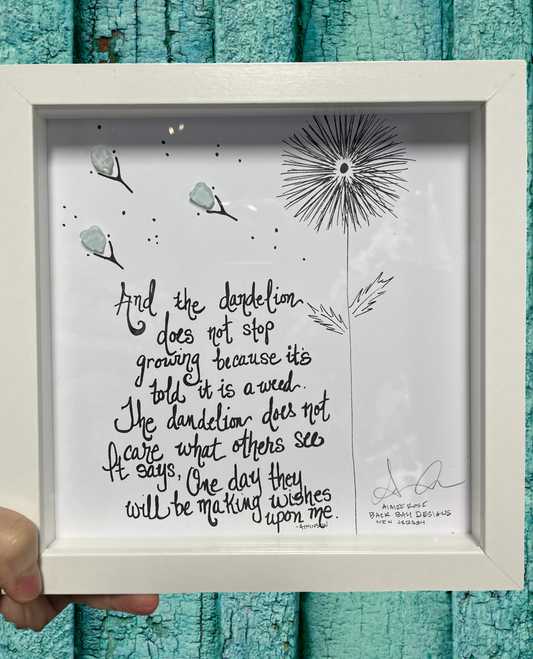 And the dandelion
does not stop
growing because it's
told it is a weed.
The dandelion does not
care what others see
It says, One day they
will be making wishes
upon me.
AIMEE ROSE
BACK BAY DESIGNS
NEW JERSEY